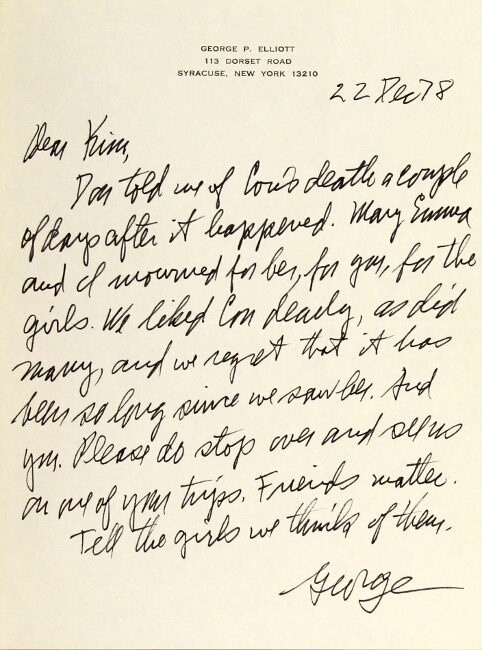 GEORGE P. ELLIOTT
113 DORSET ROAD
SYRACUSE, NEW YORK 13210
22 Dec 78
Dear Kim,
Don told us of Con's death a couple
of days after it happened. Mary Emma
and I mourned for her, for you, for the
girls. We liked Con dearly, as did
many, and we regret that it has
been so long since we saw her. And
you. Please do stop over and see us
on one of your trips. Friends matter.
Tell the girls we think of them.
George